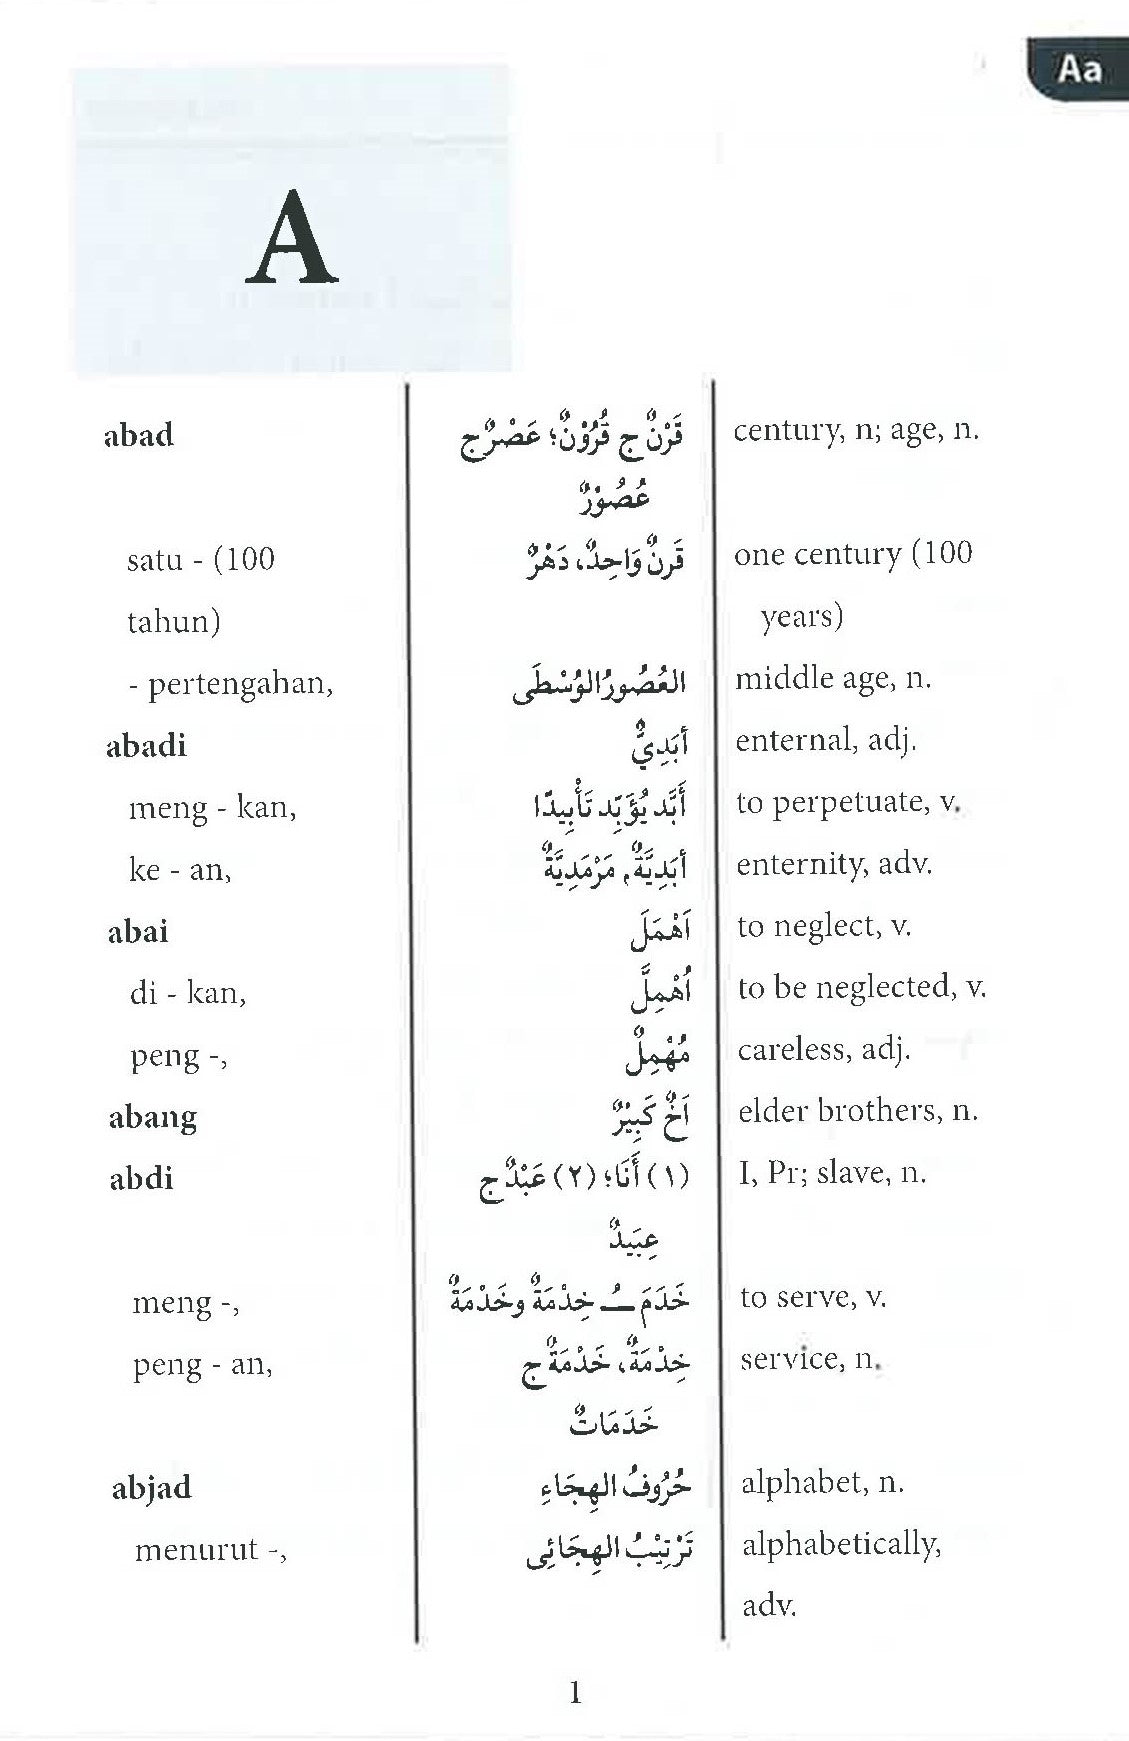 Aa
A
abad قَرْنٌ ج قُرُوْنٌ؛ عَصْرٌ ج century, n; age, n.
عُصُوْرٌ
satu - (100 قَرنٌ وَاحِدٌ، دَهْرٌ one century (100
tahun) years)
- pertengahan, العُصُورُالوُسْطَى middle age, n.
abadi أبَدِيٌّ enternal, adj.
meng - kan, أَبَّد يُؤَبِّد تَأْبِيدًا to perpetuate, v.
ke - an, أبَدِيَّةٌ, مَرْمَدِيَّةٌ enternity, adv.
abai اَهْمَلَ to neglect, v.
di - kan, اُهْمِلَّ to be neglected, v.
peng -, مُهْمِلٌ careless, adj.
abang اَخٌ كَبِيْرٌ elder brothers, n.
abdi (١) أَنَا؛ (٢) عَبْدٌ ج I, Pr; slave, n.
عِبَيدٌ
meng -, خَدَمَ ـُ خِدْمَةٌ وخَدْمَةٌ to serve, v.
peng - an, خِدْمَةٌ، خَدْمَةٌ ج service, n.
خَدَمَاتٌ
abjad حُرُوفُ الهِجَاءِ alphabet, n.
menurut -, تَرْتِيْبُ الهِجَائِى alphabetically,
adv.
1